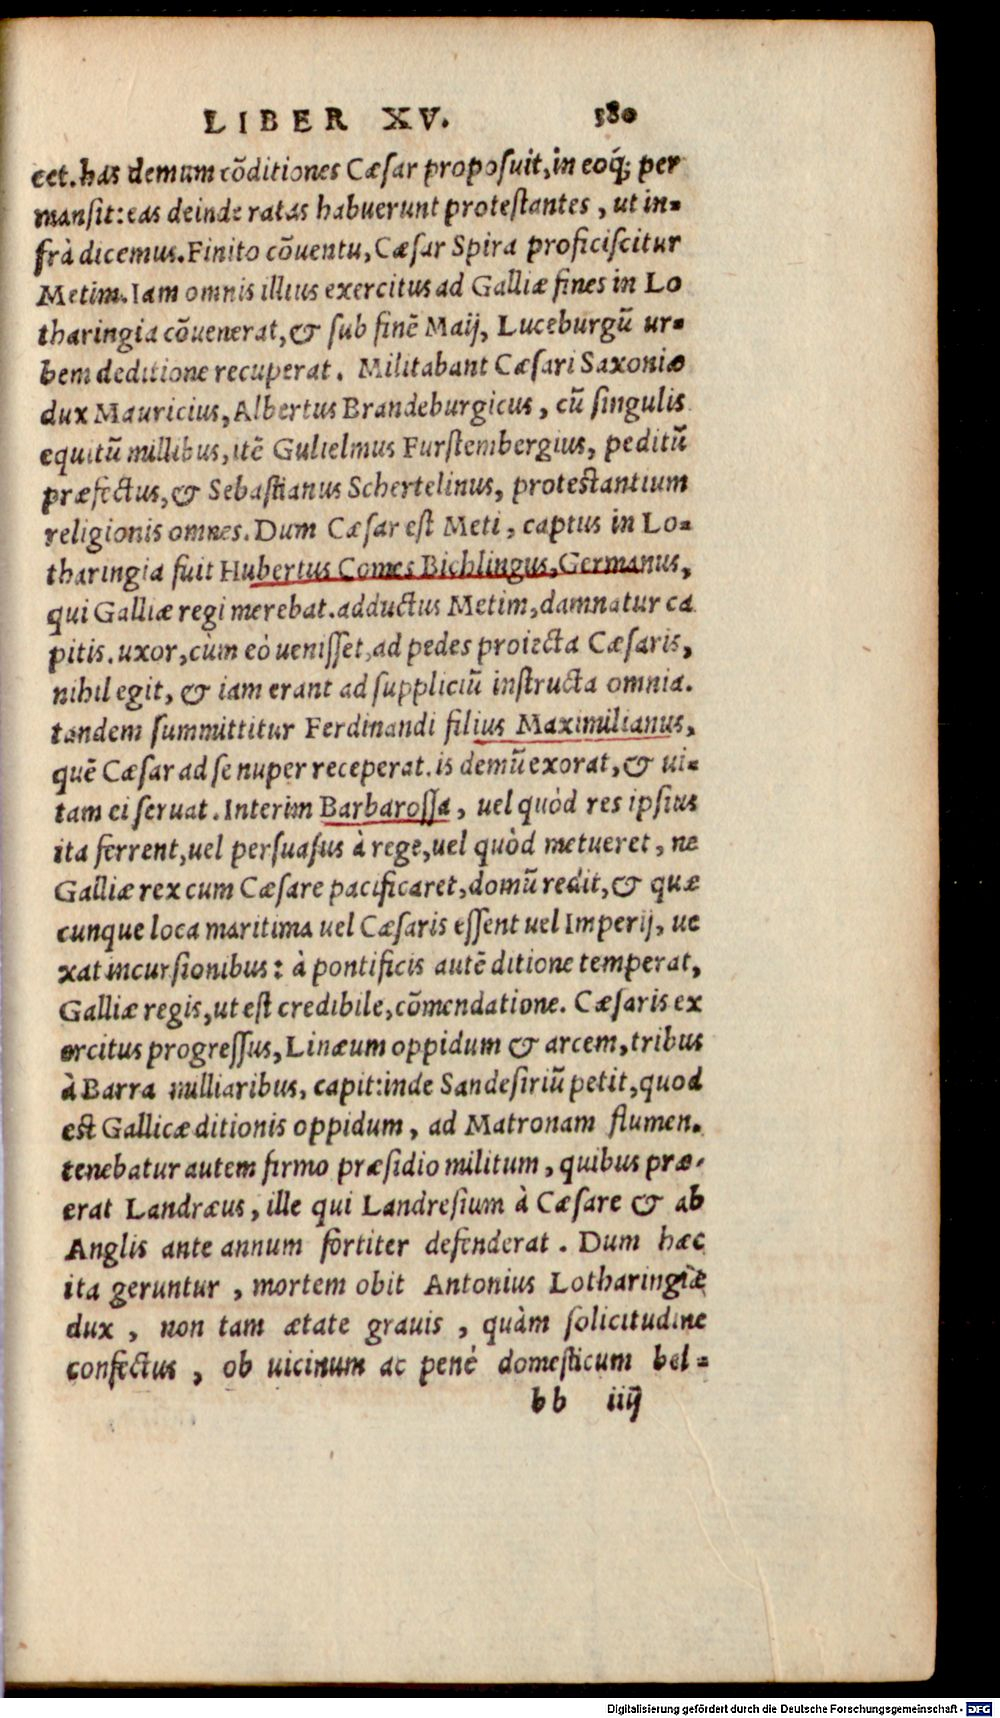 LIBER XV. 380
cet. has demum cõditiones Cæsar proposuit, in eoq́; per
mansit: eas deinde ratas habuerunt protestantes, ut in=
frà dicemus. Finito cõuentu, Cæsar Spira proficiscitur
Metim. Iam omnis illius exercitus ad Galliæ fines in Lo
tharingia cõuenerat, & sub finẽ Maij, Luceburgũ ur=
bem deditione recuperat. Militabant Cæsari Saxoniæ
dux Mauricius, Albertus Brandeburgicus, cũ singulis
equitũ millibus, itẽ Gulielmus Furstembergius, peditũ
præfectus, & Sebastianus Schertelinus, protestantium
religionis omnes. Dum Cæsar est Meti, captus in Lo=
tharingia fuit Hubertus Comes Bichlingus, Germanus,
qui Galliæ regi merebat. adductus Metim, damnatur ca
pitis. uxor, cùm eò uenisset, ad pedes proiecta Cæsaris,
nihil egit, & iam erant ad suppliciũ instructa omnia.
tandem summittitur Ferdinandi filius Maximilianus,
quẽ Cæsar ad se nuper receperat. is demũ exorat, & ui=
tam ei seruat. Interim Barbarossa, uel quòd res ipsius
ita ferrent, uel persuasus à rege, uel quòd metueret, ne
Galliæ rex cum Cæsare pacificaret, domũ redit, & quæ
cunque loca maritima uel Cæsaris essent uel Imperij, ue
xat incursionibus: à pontificis autẽ ditione temperat,
Galliæ regis, ut est credibile, cõmendatione. Cæsaris ex
ercitus progressus, Linæum oppidum & arcem, tribus
à Barra milliaribus, capit: inde Sandesiriũ petit, quod
est Gallicæ ditionis oppidum, ad Matronam flumen.
tenebatur autem firmo præsidio militum, quibus præ=
erat Landræus, ille qui Landresium à Cæsare & ab
Anglis ante annum fortiter defenderat. Dum hæc
ita geruntur, mortem obit Antonius Lotharingiæ
dux, non tam ætate grauis, quàm solicitudine
confectus, ob uicinum ac penè domesticum bel=
bb iiij
Digitalisierung gefördert durch die Deutsche Forschungsgemeinschaft - DFG